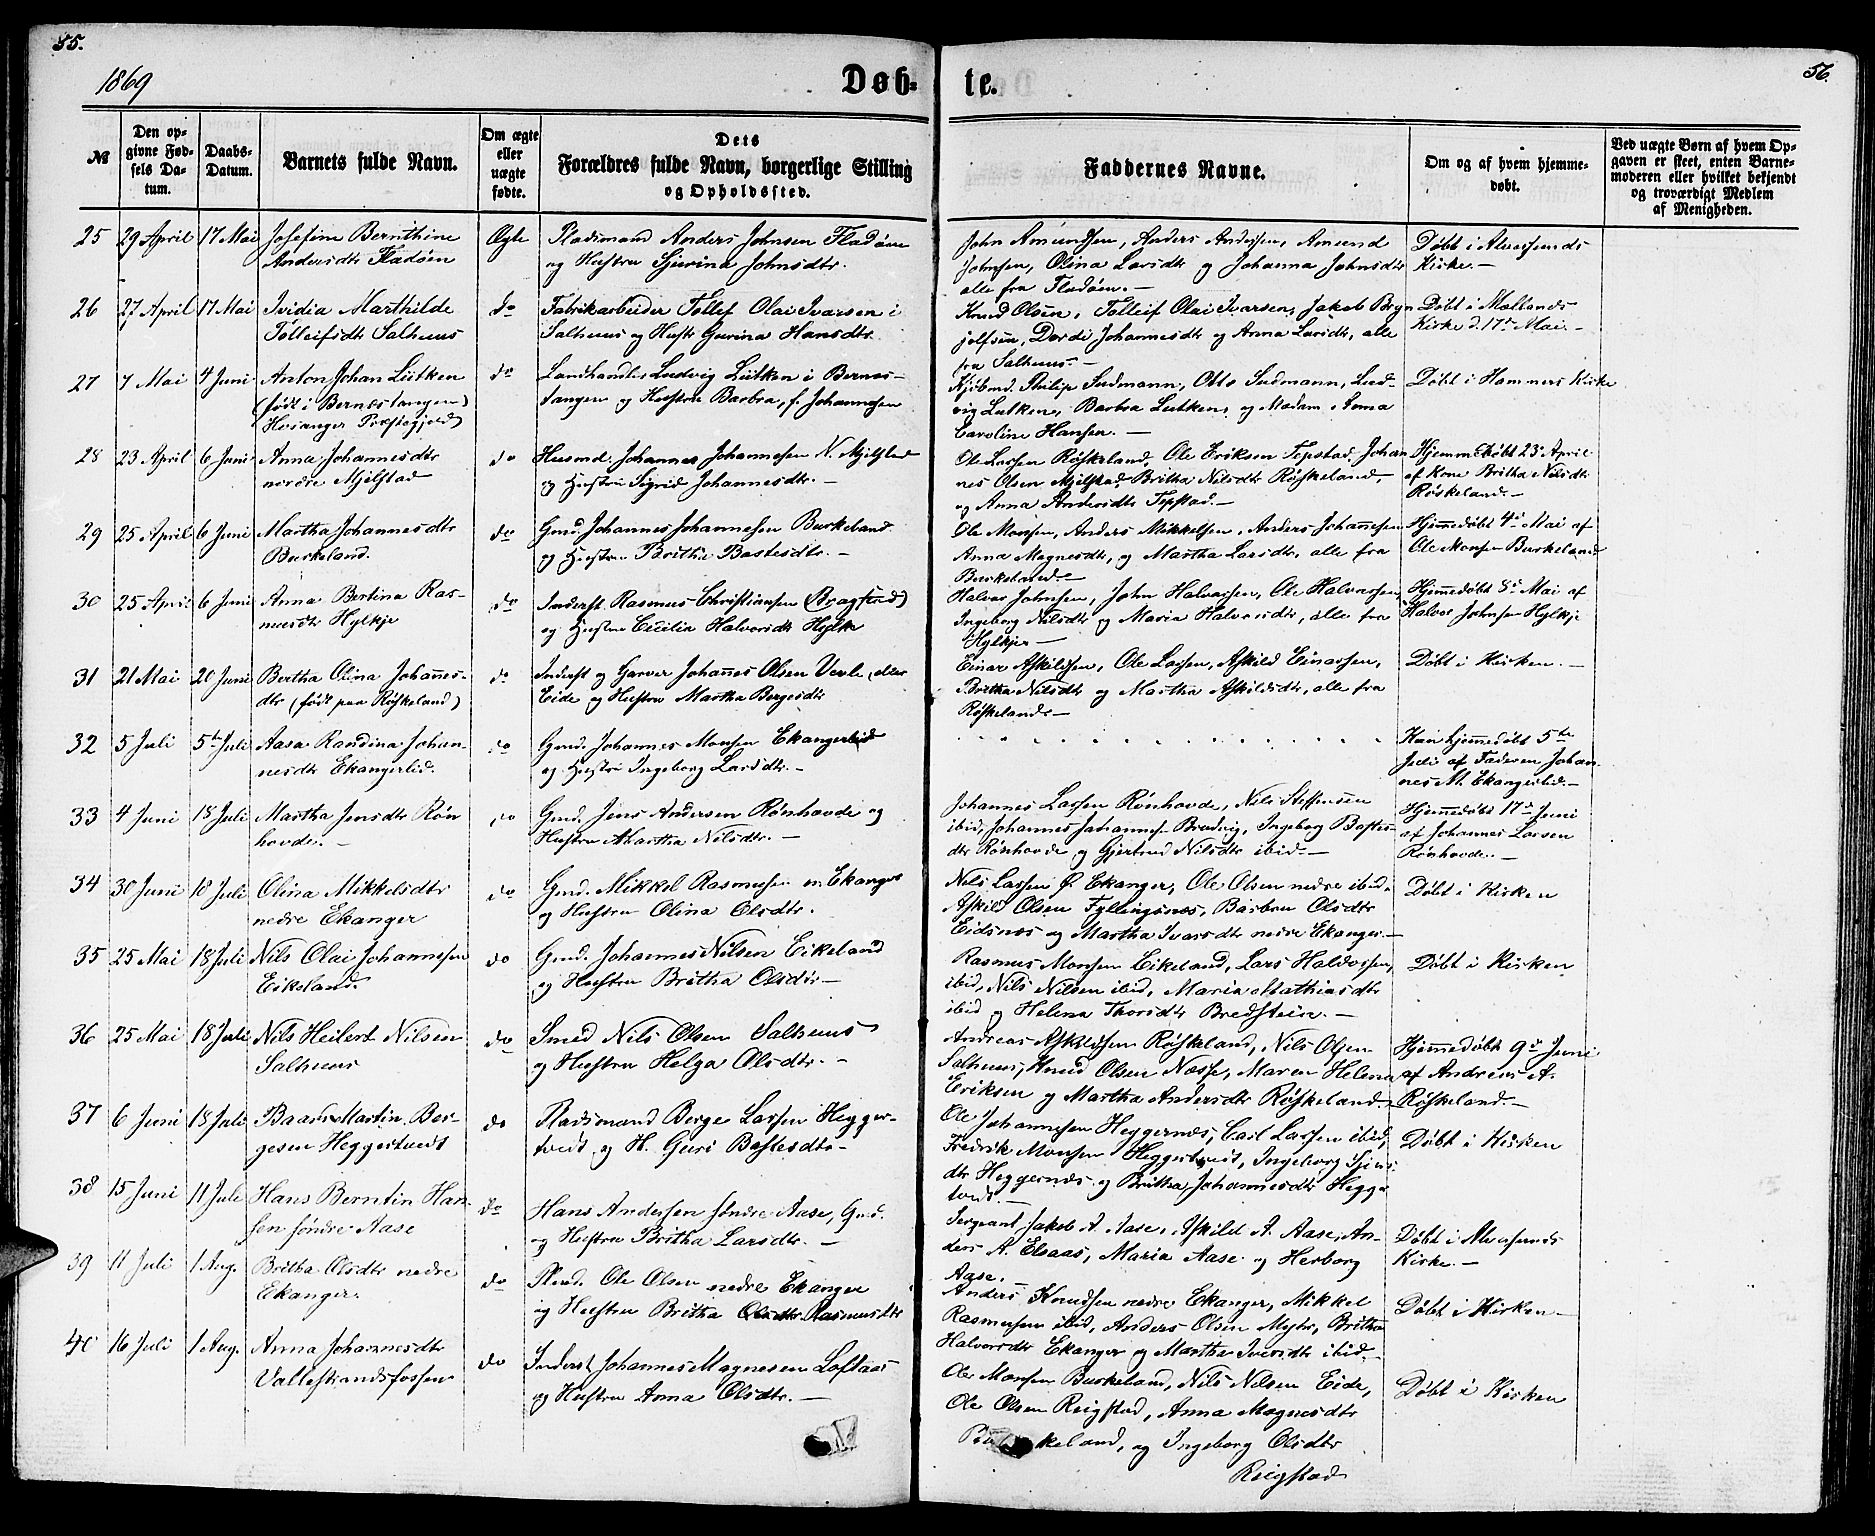 55.
56.
1869
Døb-
te.
№
Den op-
givne Fød-
sels Da-
tum.
Daabs-
Datum.
Barnets fulde Navn.
Om ægte
eller
uægte
fødte.
Dets
Forældres fulde Navn, borgerlige Stilling
og Opholdssted.
Faddernes Navne.
Om og af hvem hjemme-
døbt.
Ved uægte Børn af hvem Op-
gaven er skeet, enten Barne-
moderen eller hvilket bekjendt
og troværdigt Medlem
af Menigheden.
25 29 April 17 Mai Josefine Bernthine
Andersdtr Fladøen
Ægte
Pladsmand Anders Johnsen Fladøen
og Hustru Sjurina Johnsdtr.
John Amundsen, Anders Andersen, Amund
Johnsen, Olina Larsdtr og Johanna Johnsdtr
alle fra Fladøen.-
Døbt i Alversunds
Kirke.-
26 27 April 17 Mai Ividia Marthilde
Tolleifsdtr Salhuus
do
Fabrikarbeider Tollef Olai Ivarsen i
Salhuus og Hustr Gurina Hansdtr
Knud Olsen, Tolleif Olai Ivarsen, Jakob Bryn
jolfsen, Dordi Johannesdtr og Anna Larsdtr, alle
fra Salhuus.-
Døbt i Mællands
Kirke d. 17de Mai.-
27 7 Mai 4 Juni Anton Johan Lütken
(født i Bernestangen)
Hosanger Præstegjeld)
do
Landhandler Ludvig Lütken i Bernes-
tangen og Hustru Barbra, f. Johannesen
Kjøbmd. Philip Sudmann, Otto Sudmann, Lud-
vig Lutken, Barbra Lutken, og Madam Anna
Caroline Hansen.-
Døbt i Hammers Kirke
28 23 April 6 Juni Anna Johannesdtr
nordre Mjelstad
do
Husmd. Johannes Johannesen N. Mjelstad
og Hustru Sigrid Johannesdtr.-
Ole Larsen Røskeland, Ole Eriksen Tepstad, Johan
nes Olsen Mjelstad, Britha Nilsdtr Røskeland,
og Anna Andersdtr Tepstad.-
Hjemmedøbt 23 April
af Kone Britha Nilsdtr
Røskeland.-
29 25 April 6 Juni Martha Johannesdtr
Burkeland.
do
Gmd Johannes Johannesen Burkeland
og Hustru Britha Bastesdtr.-
Ole Monsen, Anders Mikkelsen, Anders Johannesen
Anna Magnesdtr, og Martha Larsdtr, alle fra
Burkeland.-
Hjemmedøbt 4de Mai af
Ole Monsen Burkeland
30 25 April 6 Juni Anna Bertina Ras-
musdtr Hylkje
do
Inderst Rasmus Christiansen (Bragstad)
og Hustru Cecilia Halvorsdtr Hylkje
Halvor Johnsen, John Halvorsen, Ole Halvorsen
Ingeborg Nilsdtr og Maria Halvorsdtr, alle fra
Hylkje.-
Hjemmedøbt 8de Mai af
Halvor Johnsen Hylkje
31 21 Mai 20 Juni Bertha Olina Johannes-
dtr (født paa Røskeland)
do
Inderst og Garver Johannes Olsen Verle, eller
Eide og Hustru Martha Bergesdtr
Einar Askildsen, Ole Larsen, Askild Einarsen,
Britha Nilsdtr og Martha Askildsdtr, alle fra
Røskeland.-
Døbt i Kirken.-
32 5 Juli 5te Juli Aasa Randina Johan-
nesdtr Ekangerlid.
do
Gmd. Johannes Monsen Ekangerlid
og Hustru Ingeborg Larsdtr.-
Kun hjemmedøbt 5te
Juli af Faderen Johan-
nes M. Ekangerlid.-
33 4 Juni 18 Juli Martha Jensdtr Røn
hovde.-
do
Gmd. Jens Andersen Rønhovde og
Hustru Martha Nilsdtr.-
Johannes Larsen Rønhovde, Nils Steffensen
ibid, Johannes Johannes. Bradvig, Ingeborg Bastes-
dtr Rønhovde og Gjertrud Nilsdtr ibid.-
Hjemmedøbt 17de Juni
af Johannes Larsen
Rønhovde.-
34 30 Juni 18 Juli Olina Mikkelsdtr
nedre Ekanger
do
Gmd. Mikkel Rasmusen n. Ekanger
og Hustru Olina Olsdtr.
Nils Larsen Ø. Ekanger, Ole Olsen nedre ibid.
Askild Olsen Fyllingsnes, Barbra Olsdtr
Eidsnes og Martha Ivarsdtr nedre Ekanger.-
Døbt i Kirken
35 25 Mai 18 Juli Nils Olai Johannesen
Eikeland.
do
Gmd. Johannes Nilsen Eikeland
og Hustru Britha Olsdtr.-
Rasmus Monsen Eikeland, Lars Haldorsen,
ibid, Nils Nilsen ibid, Maria Mathiasdtr
ibid og Helena Thorsdtr Bredstein.-
Døbt i Kirken
36 25 Mai 18 Juli Nils Heilert Nilsen
Salhuus
do
Smed Nils Olsen Salhuus
og Hustru Helga Olsdtr.-
Andreas Askildsen Røskeland, Nils Olsen
Salhuus, Knud Olsen Næsse, Maren Helena
Eriksen og Martha Andersdtr Røskeland.-
Hjemmedøbt 9de Juni
af Andreas A.
Røskeland.-
37 6 Juni 18 Juli Baar Martin Ber-
gesen Heggertvedt
do
Pladsmand Berge Larsen Hegger-
tvedt og H. Guri Bastesdtr-
Ole Johannesen Heggernæs, Carl Larsen ibid,
Fredrik Monsen Heggertvedt, Ingeborg Sjurs
dtr Heggernæs og Britha Johannesdtr Hegger
tvedt.-
Døbt i Kirken
38 15 Juni 11 Juli Hans Berntin Han-
sen søndre Aase
do
Hans Andersen søndre Aase, Gmd.
og Hustru Britha Larsdtr.-
Sergeant Jakob A. Aase, Askild A. Aase, An-
ders A. Elsaas, Maria Aase og Herborg
Aase.
Døbt i Alversunds
Kirke.-
39 11 Juli 1 Aug. Britha Olsdtr nedre
Ekanger.
do
Ole Olsen nedre Ekanger
og Hustru Britha Olsdtr Rasmusdtr
Anders Knudsen nedre Ekanger, Mikkel
Rasmusen ibid, Anders Olsen Myhr, Britha
Halvorsdtr Ekanger og Martha Iversdtr ibid.-
Døbt i Kirken-
40 16 Juli 1 Aug. Anna Johannesdtr
Vallestrandsfossen
do
Inderst Johannes Magnesen Loftaas
og Hustru Anna Olsdtr.-
Ole Monsen Burkeland, Nils Nilsen Eide,
Ole Olsen Reigstad, Anna Magnesdtr
Burkeland, og Ingeborg Olsdtr
Reigstad
Døbt i Kirken